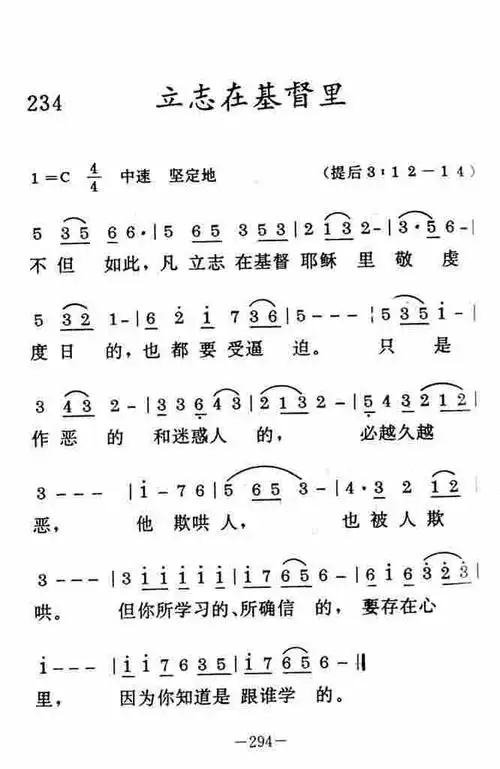 234 立志在基督里
1=C 4/4 中速 坚定地 (提后3:12-14)
5 3 5 6 6·|5 6 5 3 5 3|2 1 3 2-|3·5 6-|
不但 如此，凡 立志 在基督 耶稣 里 敬 虔
5 3 2 1-|6 2 1 7 3 6|5---|5 3 5 1-|
度日 的，也 都 要 受逼 迫。 只 是
3 4 3 2-|3 3 6 4 3|2 1 3 2-|5 4 3 2 1 2|
作恶 的 和迷惑人 的， 必越久越
3---|1-7 6|5 6 5 3-|4·3 2 1 2|
恶， 他 欺哄 人， 也 被 人 欺
3---|3 1 1 1 1 1|1 7 6 5 6-|6 1 6 3 2 3|
哄。 但你所学习的、所确信 的，要存在心
1---|1 1 7 6 3 5|1 7 6 5 6-‖
里， 因为你知道是 跟谁学 的。
-294-